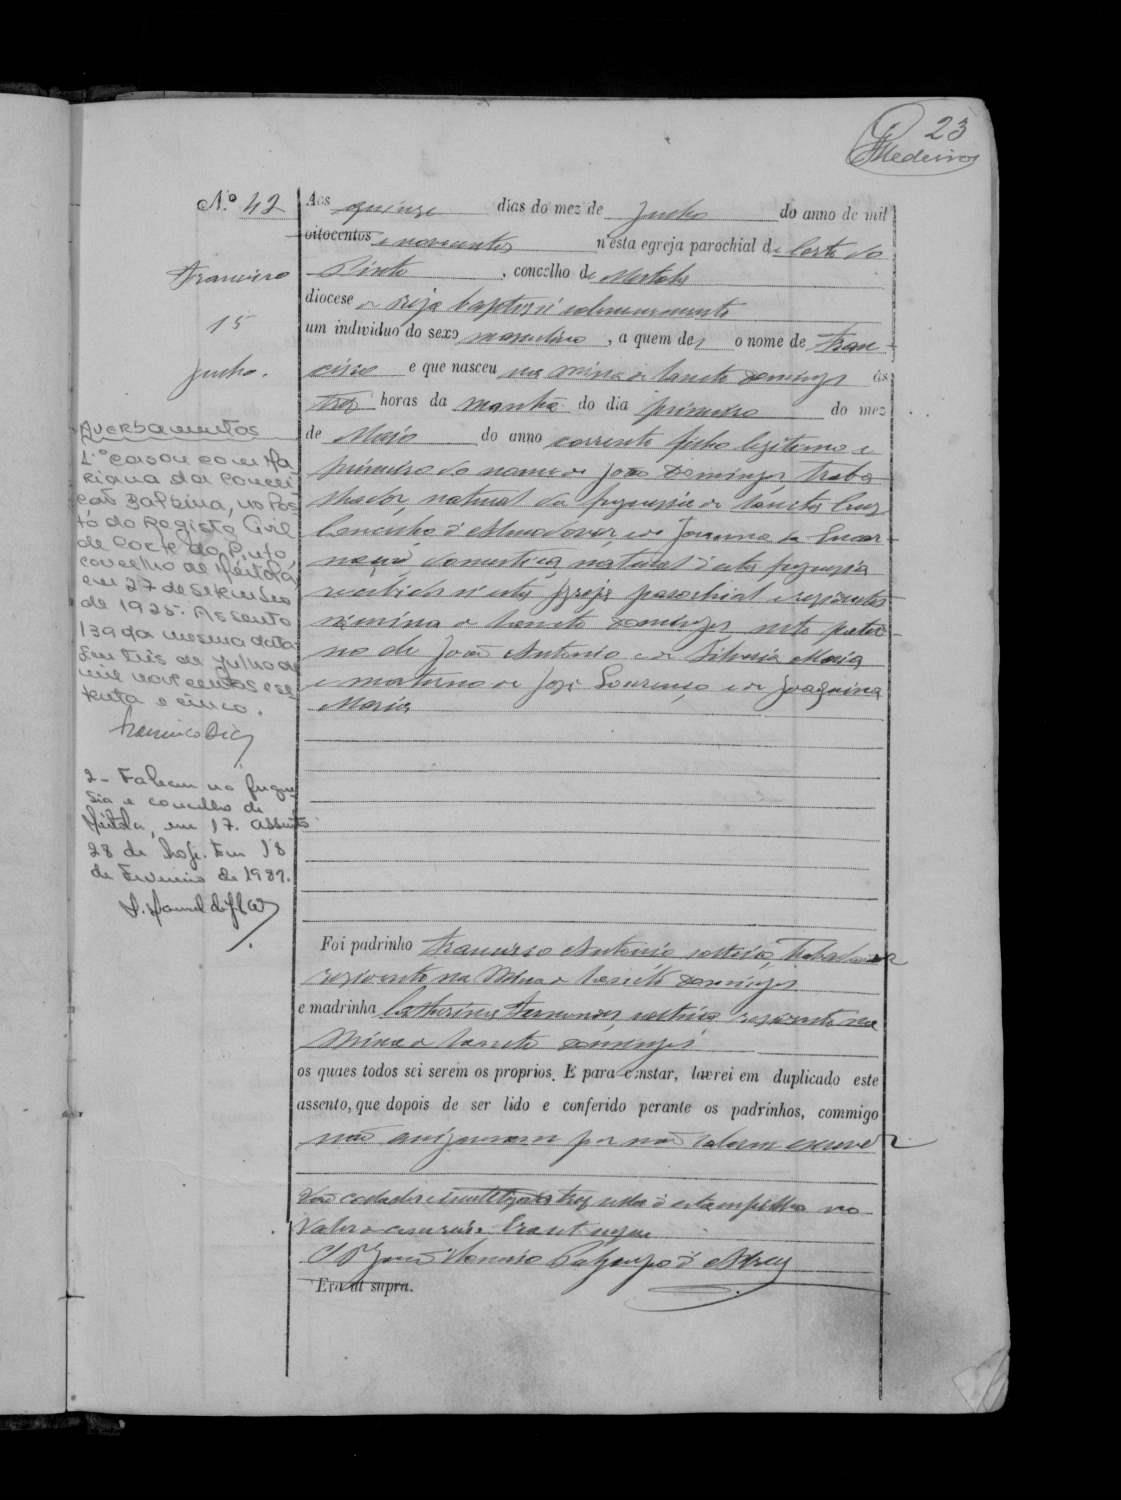 23
Medeiros
N.º 42
Francisco
15
Junho.
Aos quinze dias do mez de Junho do anno de mil
oitocentos e novecentos n'esta egreja parochial de Corte do
Pinto, concelho de Mertola
diocese de Beja baptizei solemnemente
um individuo do sexo masculino, a quem dei o nome de Fran-
cisco e que nasceu na mina de Sancto Domingos ás
trez horas da manhã do dia primeiro do mez
de Maio do anno corrente filho legitimo e
primeiro do nome de João Domingos, traba-
lhador, natural da freguesia de Sancta Cruz
Concelho d'Almodovar, e de Joanna da Encar-
nação, domestica, natural d'esta freguesia
recebidos n'esta Igreja parochial e residentes
na mina de Sancto Domingos neto pater-
no de João Antonio e de Silveria Maria
e materno de José Lourenço e de Joaquina
Maria
Foi padrinho Francisco Antonio, solteiro, trabalhador
residente na Mina de Sancto Domingos
e madrinha Catharina Fernandes, solteira residente na
Mina de Sancto Domingos
os quaes todos sei serem os proprios. E para constar, lavrei em duplicado este
assento, que depois de ser lido e conferido perante os padrinhos, commigo
não assignaram por não saberem escrever
Vão collados e trez sellos d'estampilha no
valor Era ut supra
Era ut supra.
Averbamentos
1.º Casou com Ma-
riana da Concei-
ção Balbina, no Pos-
to do Registo Civil
de Corte do Pinto,
concelho de Mértola,
em 27 de Setembro
de 1925. Assento
139 da mesma data
Em três de Julho de
mil novecentos e se-
tenta e cinco.
2 - Faleceu na fregue
sia e concelho de
Mértola, em 17. Assento
28 de hoje. Em 18
de Fevereiro de 1987.